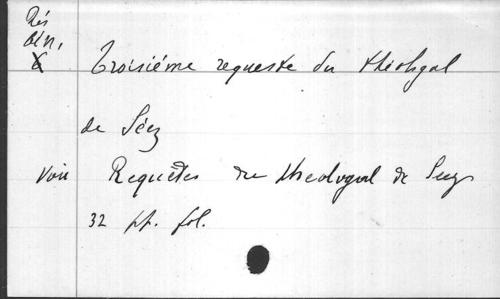 Rés
Troisiéme requeste du théologal
de Séez
Voir Requêtes du theologal de Seez
32 pp. fol.